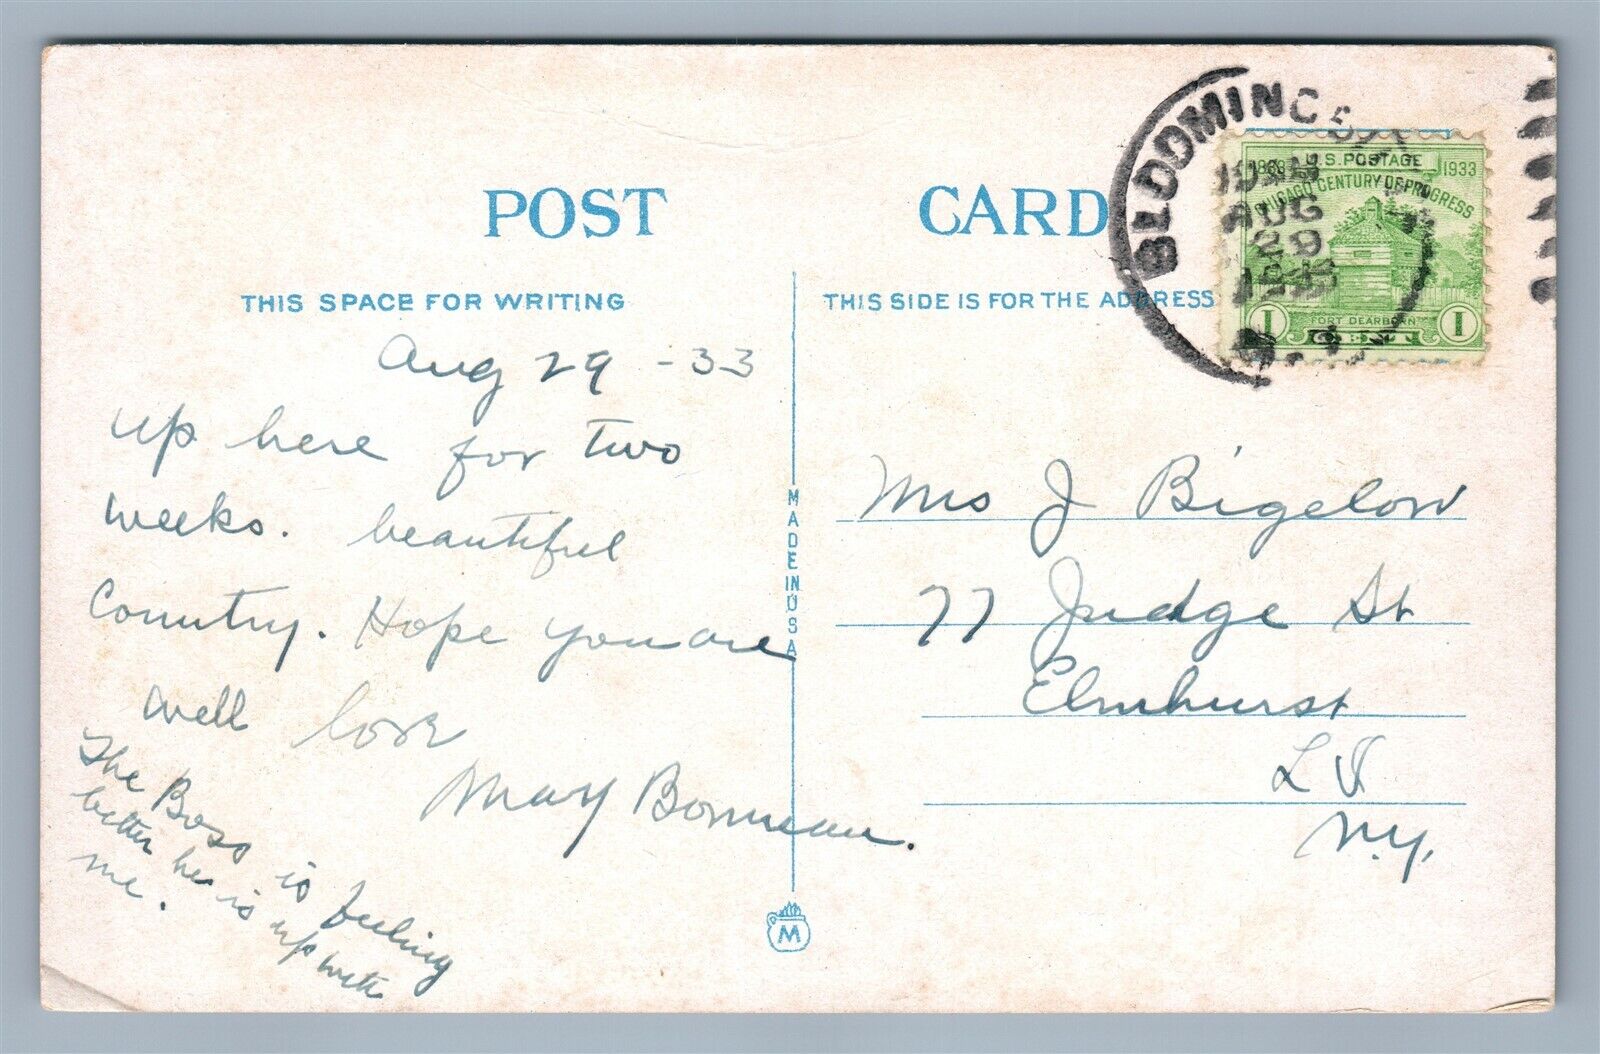 POST CARD
THIS SPACE FOR WRITING
THIS SIDE IS FOR THE ADDRESS
Aug 29 - 33
up here for two
weeks. beautiful
Country. Hope you are
well love
May Bonneau.
The Boss is feeling
better he is up with
me.
MADE IN USA
M
BLOOMINGB
AUG
29
U.S. POSTAGE
1933
CHICAGO CENTURY OF PROGRESS
FORT DEARBORN
1 CENT 1
Mrs J Bigelow
77 Judge St
Elmhurst
L I
N.Y.